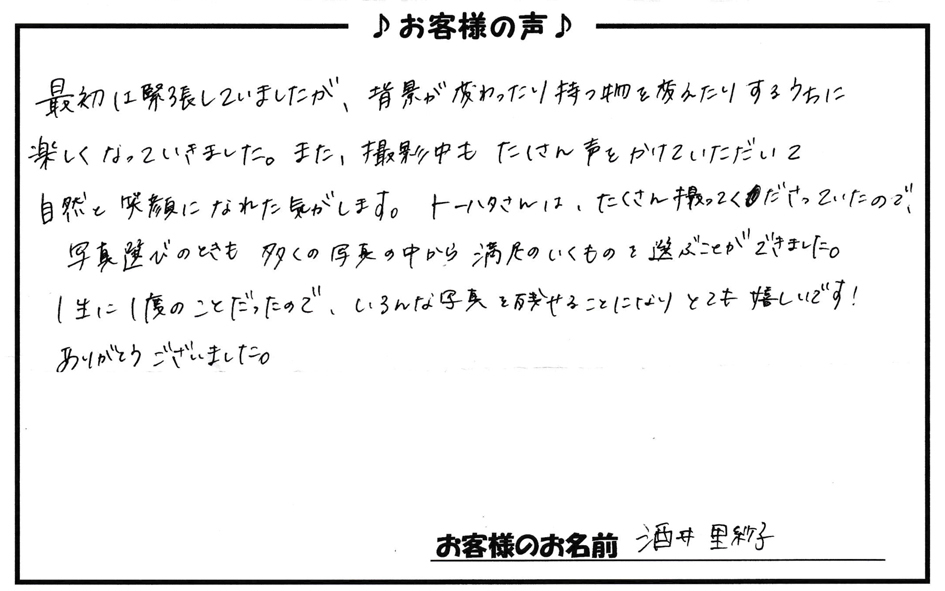 ♪お客様の声♪
最初は緊張していましたが、背景が変わったり持つ物を変えたりするうちに
楽しくなっていきました。また、撮影中もたくさん声をかけていただいて
自然と笑顔になれた気がします。トーハタさんは、たくさん撮ってくださっていたので、
写真選びのときも多くの写真の中から満足のいくものを選ぶことができました。
1生に1度のことだったので、いろんな写真を残せることになりとても嬉しいです!
ありがとうございました。
お客様のお名前 酒井里紗子